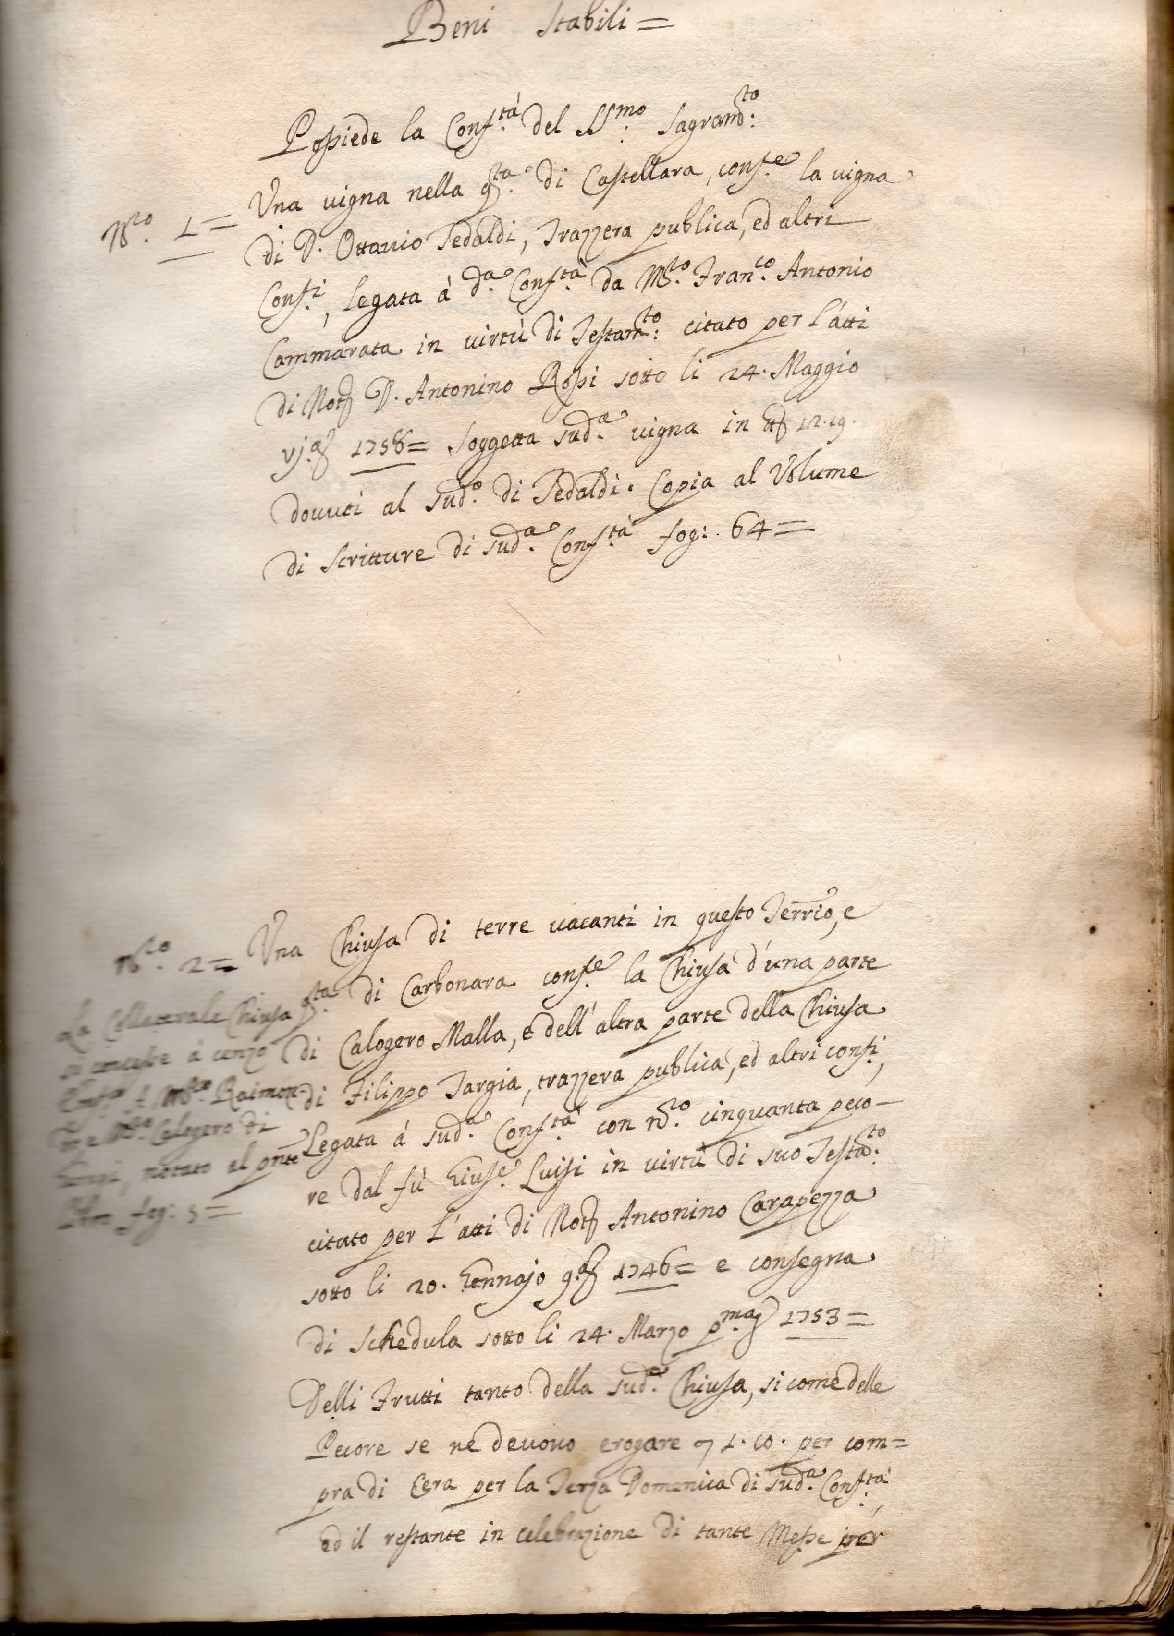 Beni Stabili =
Possiede la Conf.tá del SS.mo Sagram.to:
N.ro 1 = Una vigna nella q.ta di Castellara, conf.e la vigna
di D. Ottavio Tedaldi, Trazzera publica, ed altri
Conf.i, legata á d.a Conf.tà da M.ro Fran.co Antonio
Cammarata in virtù di Testam.to: citato per l'atti
di Not.r D. Antonino Rossi sotto li 24. Maggio
vj.a 1758 = Soggetta sud.a vigna in 12.19.
dovuti al sud.o di Tedaldi. Copia al Volume
di Scritture di sud.a Conf.tà fog: 64 =
N.ro 2 = Una Chiusa di terre vacanti in questo Terrio, e
q.ta di Carbonara conf.e la Chiusa d'una parte
di Calogero Malla, e dell'altra parte della Chiusa
di Filippo Targia, trazzera publica, ed altri conf.i,
Legata á sud.a Conf.tà con n.ro cinquanta peco-
re dal fù Gius.e Luisi in virtù di suo Testa.to
citato per l'atti di Not.r Antonino Carapezza
sotto li 20. Gennajo 9.a 1746 = e consegna
di Schedula sotto li 24. Marzo p.ma 1753 =
Delli Frutti tanto della sud.a Chiusa, si come delle
Pecore se ne devono erogare 1.10. per com=
pra di Cera per la Terza Domenica di sud.a Conf.tá,
ed il restante in celebrazione di tante Messe per
La Collaterale Chiusa
si concesse á cenzo
á M.ro Raimon-
do e M.ro Calogero di
notato al pnte
Libro fog: 5 =